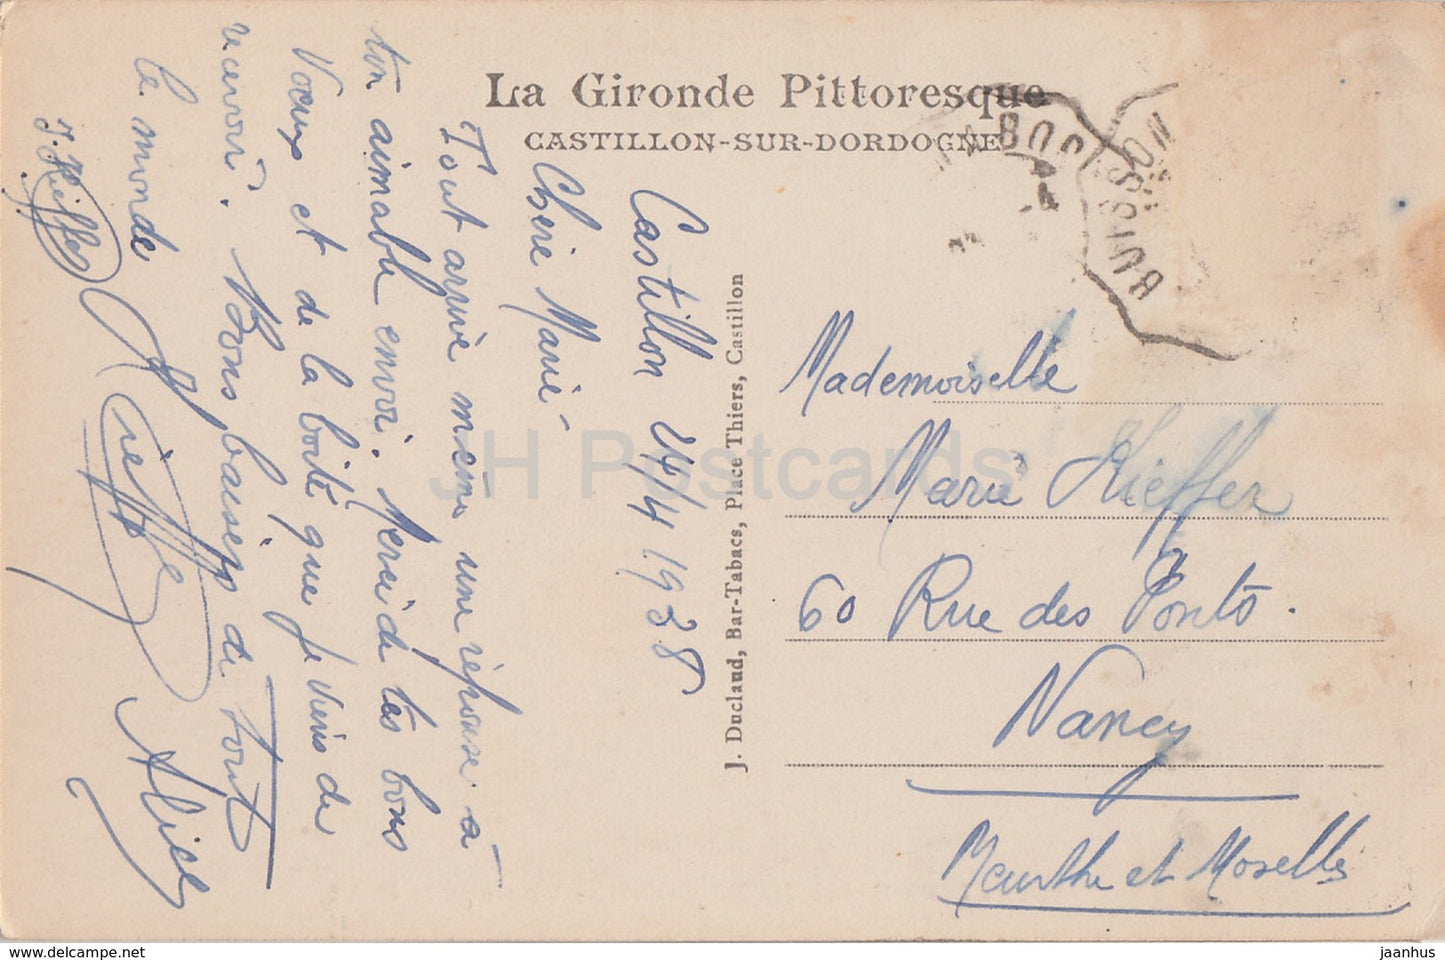 La Gironde Pittoresque
CASTILLON-SUR-DORDOGNE
Castillon 24/4 1938
Chère Marie
Tout arrive même une réponse à
ton aimable envoi. Merci de tes bons
Voeux et de la boîte que je viens de
recevoir. Bons baisers de tout
le monde
J. Kieffer
Kieffer
Alice
J. Duclaud, Bar-Tabacs, Place Thiers, Castillon
BUISSON
Mademoiselle
Marie Kieffer
60 Rue des Ponts.
Nancy
Meurthe et Moselle
JH Postcards
www.delcampe.net
jaanhus